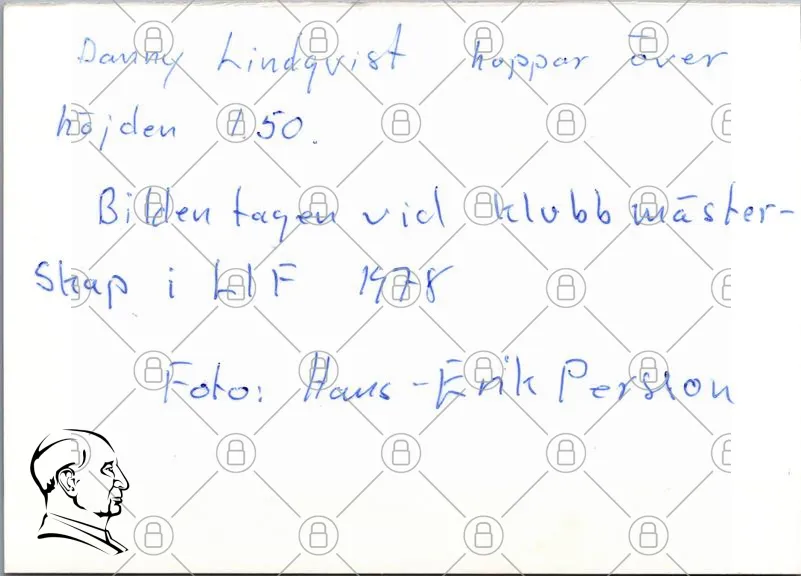 Danny Lindqvist hoppar över
höjden 1.50.
Bilden tagen vid klubbmäster-
skap i LIF 1978
Foto: Hans-Erik Persson